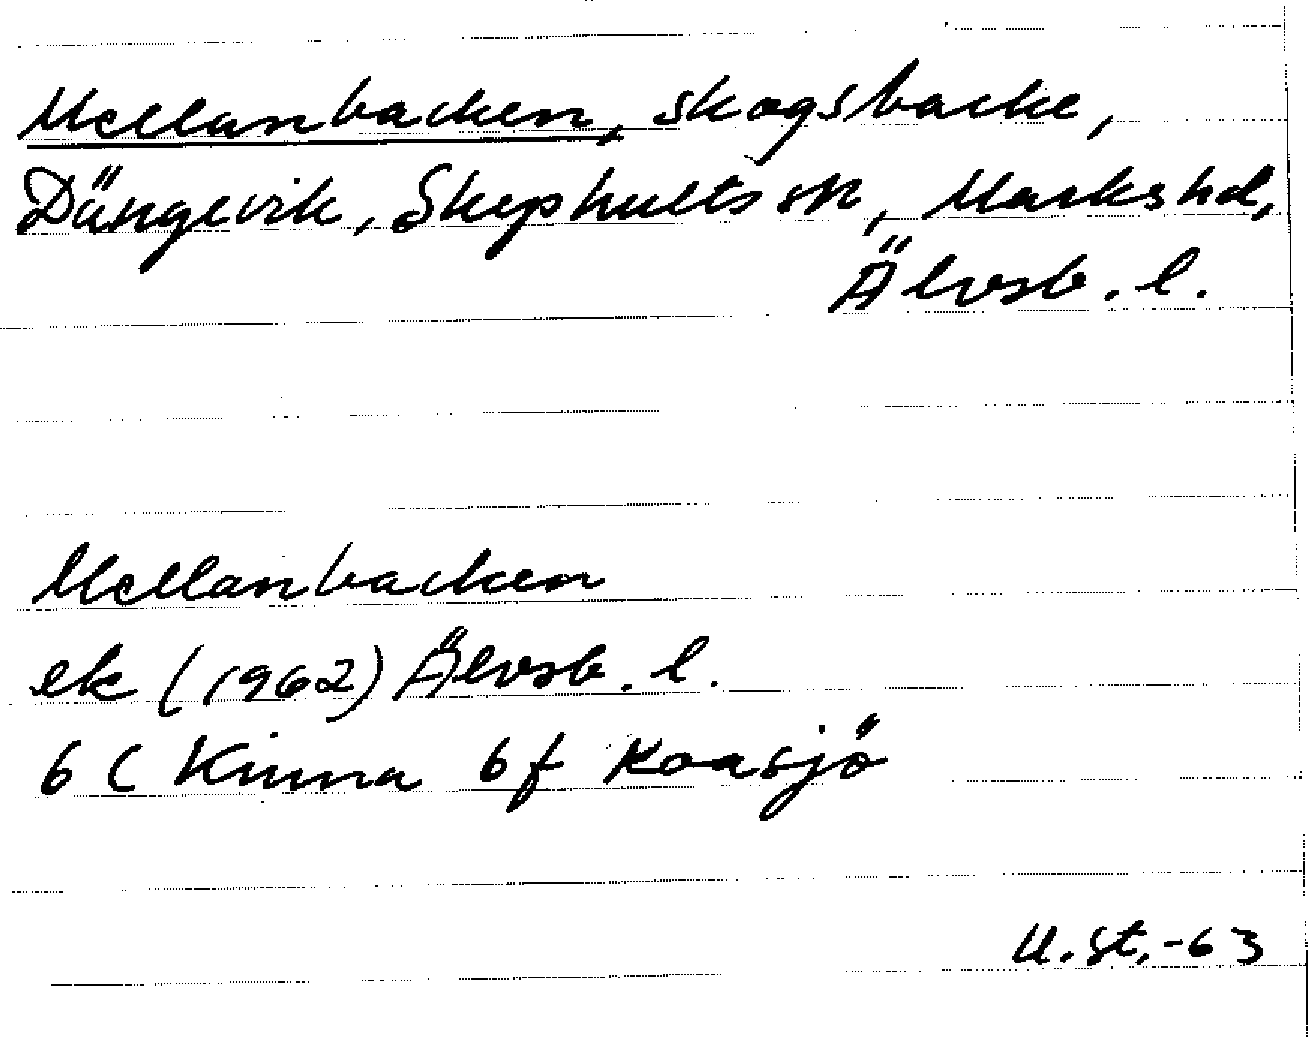 Mellanbacken, skogsbacke,
Dängevik, Skephults sn, Marks hd,
Älvsb. l.
Mellanbacken
ek (1962) Älvsb. l.
6 C Kinna 6f Roasjö
U.St.-63